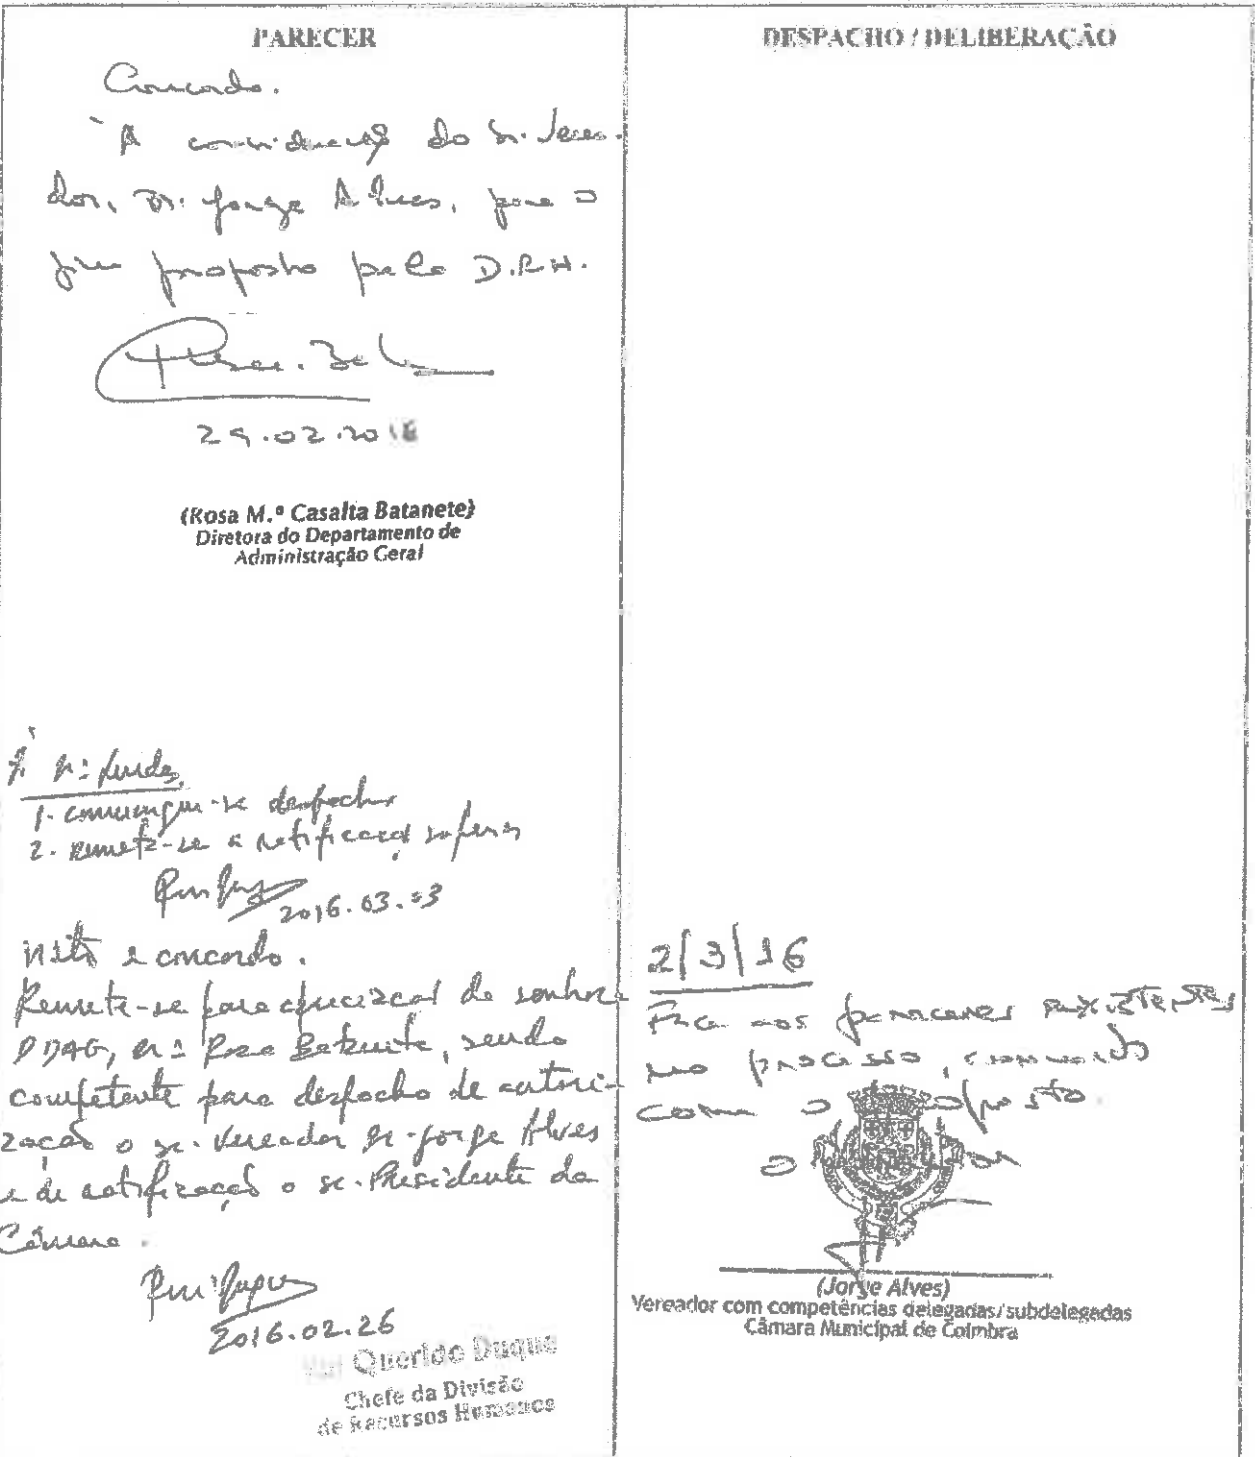 PARECER
Concordo.
À consideração do Sr. Verea-
dor, Dr. Jorge Alves, para o
fim proposto pela D.R.H.
29.02.2016
(Rosa M.ª Casalta Batanete)
Diretora do Departamento de
Administração Geral
À
1. comunique-se despacho
2. remete-se a ratificação
2016.03.03
Visto e concordo.
Remete-se para apreciação da senhora
DDAG, Dr.ª Rosa Batanete, sendo
competente para despacho de autori-
zação o sr. Vereador Dr. Jorge Alves
e de ratificação o sr. Presidente da
Câmara.
Rui Duque
2016.02.26
Rui Querido Duque
Chefe da Divisão
de Recursos Humanos
DESPACHO / DELIBERAÇÃO
2/3/16
Face aos pareceres existentes
no processo, concordo
com o proposto.
O
(Jorge Alves)
Vereador com competências delegadas/subdelegadas
Câmara Municipal de Coimbra